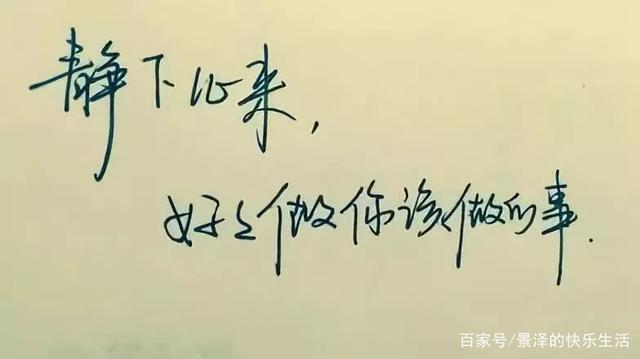 静下心来，
好好做你该做的事.
百家号/景泽的快乐生活